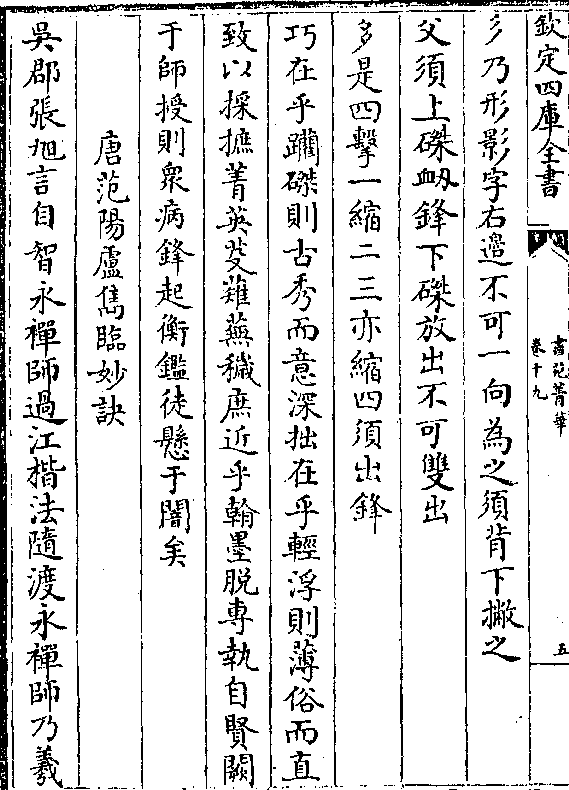 欽定四庫全書
書苑菁華
卷十九
五
彡乃形影字右邉不可一向為之須背下撇之
父須上磔衂鋒下磔放出不可雙出
多是四擊一縮二三亦縮四須出鋒
巧在乎躝磔則古秀而意深拙在乎輕浮則薄俗而直
致以採摭菁英芟薙蕪穢庶近乎翰墨脱專執自賢闕
于師授則衆病鋒起衡鑑徒懸于闇矣
唐范陽盧雋臨妙訣
吳郡張旭言自智永禪師過江楷法隨渡永禪師乃羲